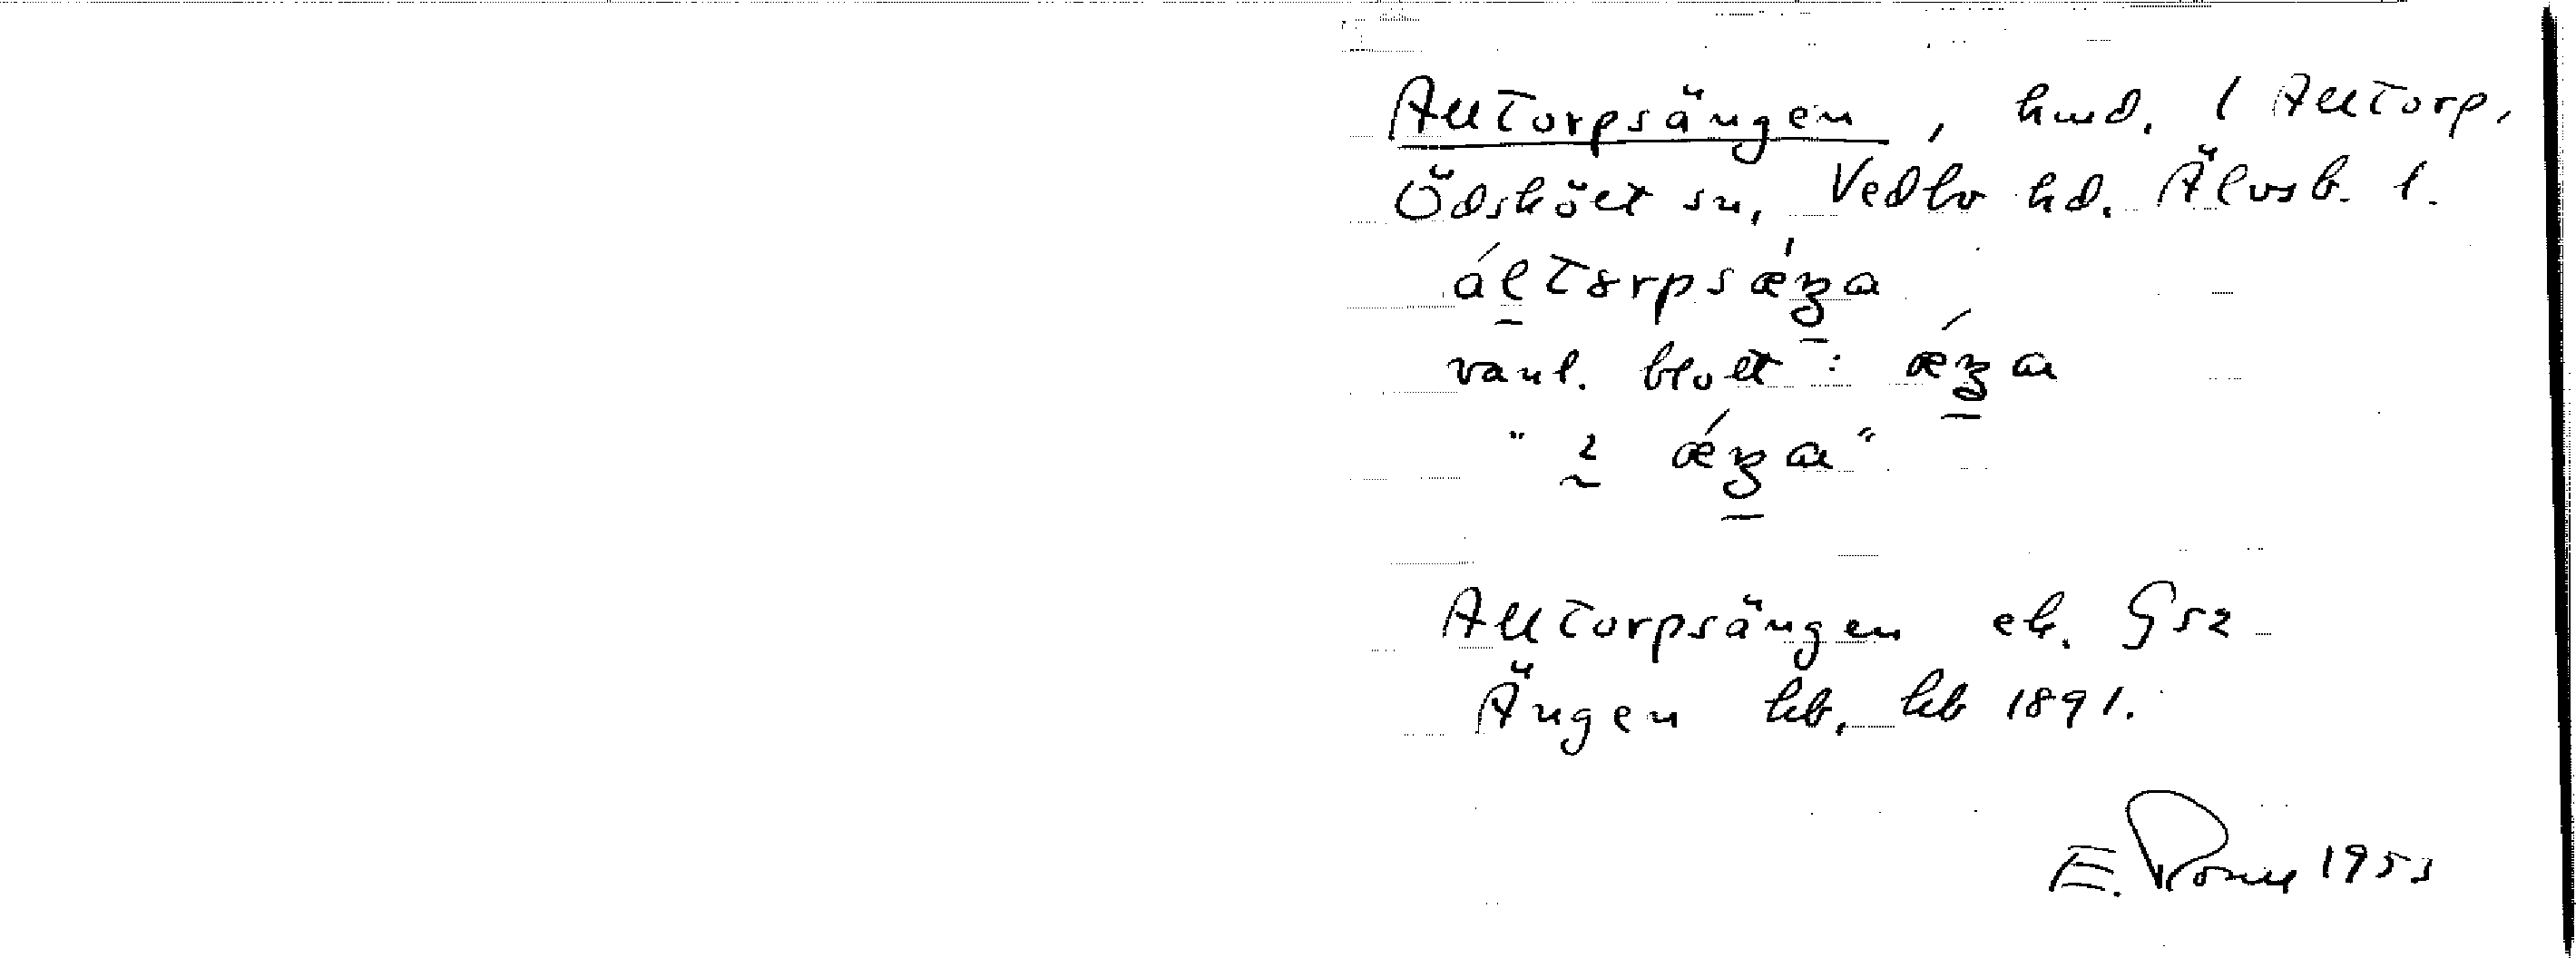 Alltorpsängen, hmd. l Alltorp,
Ödsköllt sn, Vedbo hd. Älvsb. l.
áltorpsæ̍ŋa
vanl. blott: ǽŋa
" 2 ǽŋa"
Alltorpsängen ek. G52
Ängen hb, kb 1891.
E. 1953